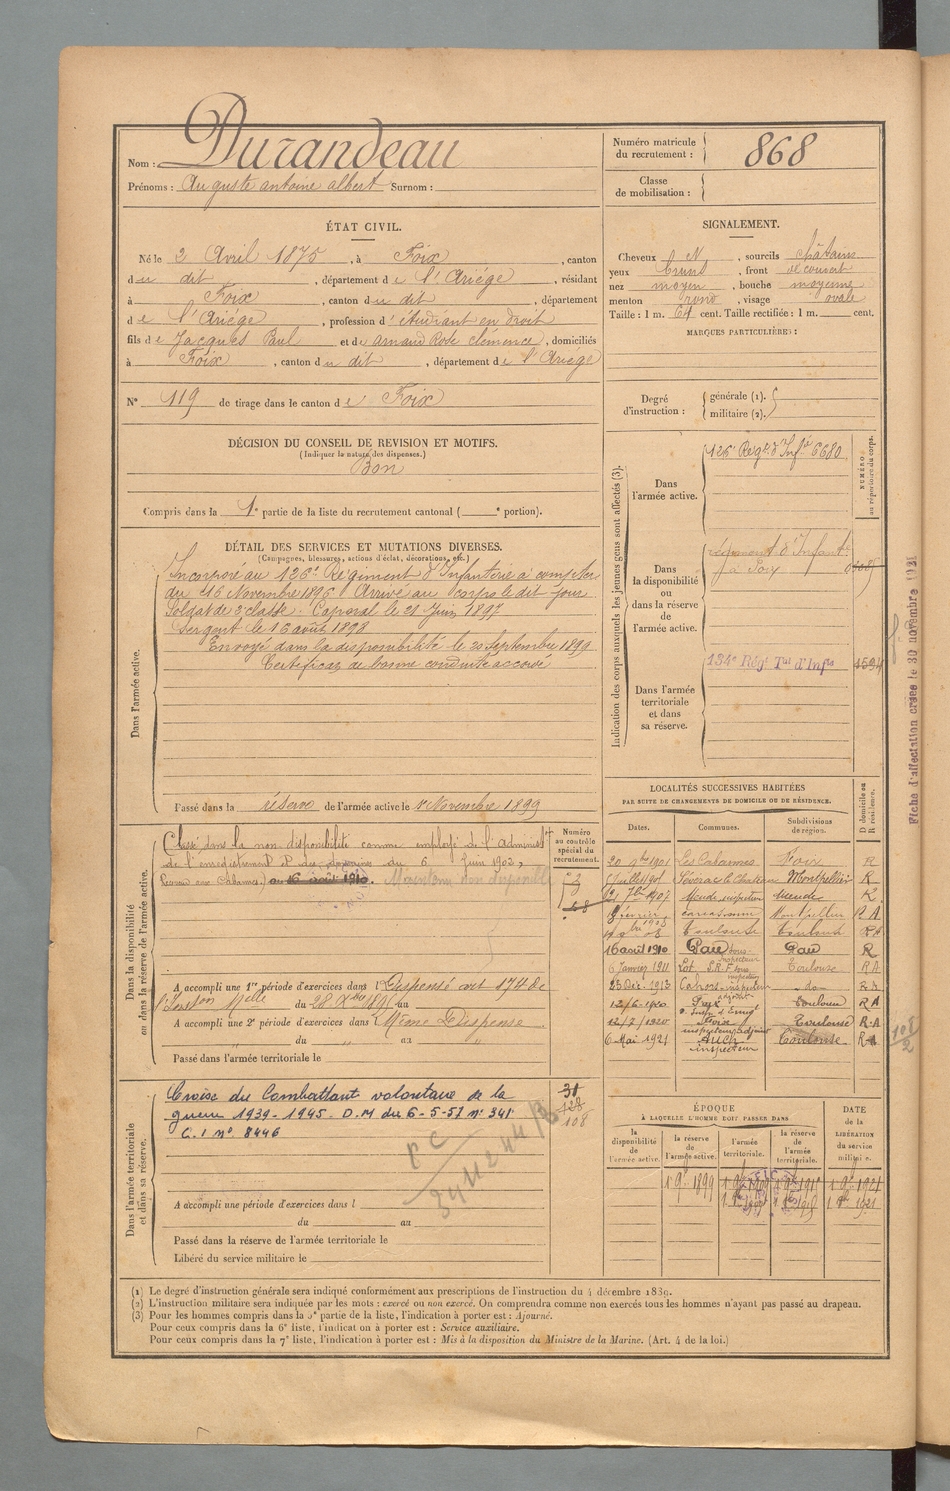 Nom : Durandeau
Prénoms : Auguste antoine albert Surnom :
Numéro matricule
du recrutement : 868
Classe
de mobilisation :
ÉTAT CIVIL.
Né le 2 Avril 1875, à Foix, canton
du dit, département de l'Ariége, résidant
à Foix, canton du dit, département
de l'Ariége, profession d'étudiant en droit
fils de Jacques Paul et de arnaud Rose clémence, domiciliés
à Foix, canton du dit, département de l'Ariege
N° 119 de tirage dans le canton de Foix
DÉCISION DU CONSEIL DE REVISION ET MOTIFS.
(Indiquer la nature des dispenses.)
Bon
Compris dans la 1e partie de la liste du recrutement cantonal ( e portion).
SIGNALEMENT.
Cheveux N, sourcils châtains
yeux bruns, front découvert
nez moyen, bouche moyenne
menton rond, visage ovale
Taille : 1 m. 64 cent. Taille rectifiée : 1 m. cent.
MARQUES PARTICULIÈRES :
Degré
d'instruction :
générale (1).
militaire (2).
DÉTAIL DES SERVICES ET MUTATIONS DIVERSES.
(Campagnes, blessures, actions d'éclat, décorations, etc.)
Dans l'armée active.
Incorporé au 126e Régiment d'Infanterie à compter
du 16 Novembre 1896 Arrivé au corps le dit jour
Soldat de 2e classe. Caporal le 21 Juin 1897
Sergent le 16 août 1898
Envoyé dans la disponibilité le 20 Septembre 1899
Certificat de bonne conduite accordé
Passé dans la réserve de l'armée active le 1er Novembre 1899
Indication des corps auxquels les jeunes gens sont affectés (3).
NUMÉRO
au répertoire du corps.
Dans
l'armée active.
126e Régt d'Infie 6680
Dans
la disponibilité
ou
dans la réserve
de
l'armée active.
régiment d'Infant.
à Foix
Dans l'armée
territoriale
et dans
sa réserve.
134e Régt Tal d'Infie 1594
Fiche d'affectation créée le 30 novembre 1921
Dans la disponibilité
ou dans la réserve de l'armée active.
Numéro
au contrôle
spécial du
recrutement.
Classé dans la non disponibilité comme employé de l'Administ
de l'enregistrement et des domaines du 6 Juin 1902,
au 16 août 1910. Maintenu non disponible
A accompli une 1re période d'exercices dans l Dispensé art 174 de
l'Inston Melle du 28 Xbre 1895 au
A accompli une 2e période d'exercices dans l Même Dispense
du " au "
Passé dans l'armée territoriale le
LOCALITÉS SUCCESSIVES HABITÉES
PAR SUITE DE CHANGEMENTS DE DOMICILE OU DE RÉSIDENCE.
Dates. Communes. Subdivisions
de région. D domicile ou
R résidence.
20 9bre 1901 Les Cabannes Foix R
Juillet 1901 Séverac le Chateau Montpellier R
7bre 1907 Mende, inspection Mende R
février carcassonne Montpellier R A
Toulouse Toulouse R A
16 août 1910 Pau sous-inspecteur Pau R
6 Janvier 1911 Lot Toulouse R A
23 Déc. 1913 Cahors - inspecteur do R A
12/6-1920 Foix Toulouse R A
12/7/1920 Foix inspecteur adjoint Toulouse R-A
6 Mai 1921 AUCH inspecteur Toulouse R-A
Dans l'armée territoriale
et dans sa réserve.
Croix du Combattant volontaire de la
guerre 1939-1945. D.M du 6-5-57 n° 341
C.I n° 8446
31
128
108
A accompli une période d'exercices dans l
du au
Passé dans la réserve de l'armée territoriale le
Libéré du service militaire le
ÉPOQUE
À LAQUELLE L'HOMME DOIT PASSER DANS
DATE
de la
LIBÉRATION
du service
militaire.
la
disponibilité
de
l'armée active.
la réserve
de
l'armée active.
l'armée
territoriale.
la réserve
de
l'armée
territoriale.
1 9bre 1899
1 9bre 1921
(1) Le degré d'instruction générale sera indiqué conformément aux prescriptions de l'instruction du 4 décembre 1889.
(2) L'instruction militaire sera indiquée par les mots : exercé ou non exercé. On comprendra comme non exercés tous les hommes n'ayant pas passé au drapeau.
(3) Pour les hommes compris dans la 5e partie de la liste, l'indication à porter est : Ajourné.
Pour ceux compris dans la 6e liste, l'indication à porter est : Service auxiliaire.
Pour ceux compris dans la 7e liste, l'indication à porter est : Mis à la disposition du Ministre de la Marine. (Art. 4 de la loi.)